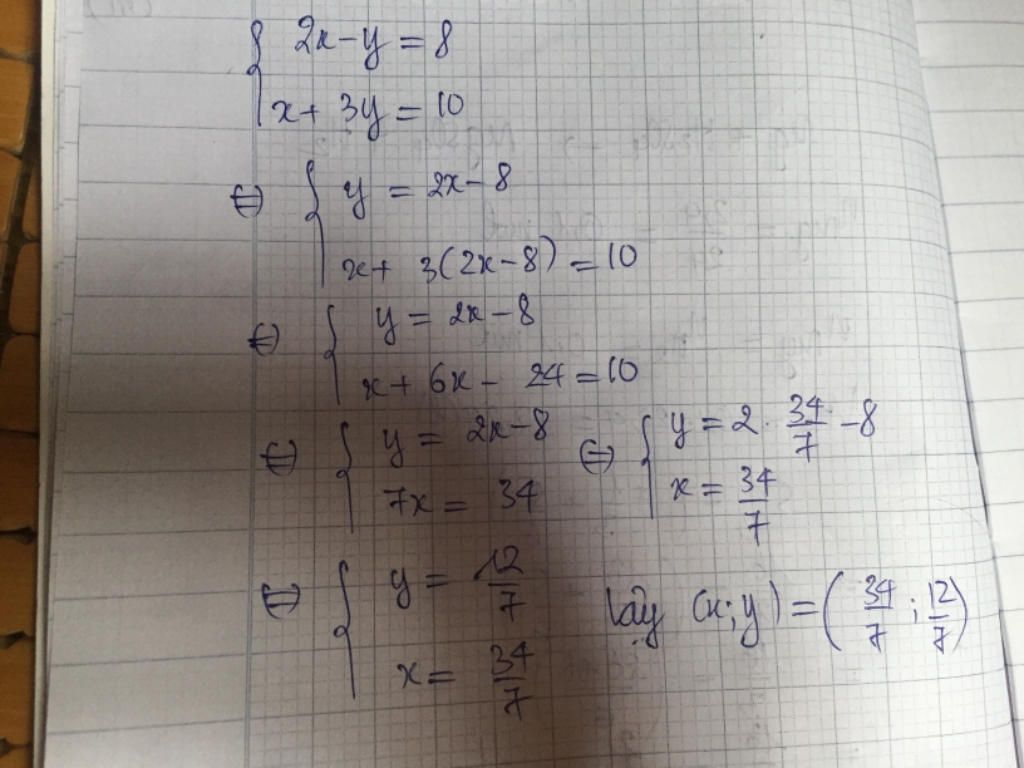 { 2x - y = 8
x + 3y = 10
⇔ { y = 2x - 8
x + 3(2x - 8) = 10
⇔ { y = 2x - 8
x + 6x - 24 = 10
⇔ { y = 2x - 8 ⇔ { y = 2 . 34/7 - 8
7x = 34 x = 34/7
⇔ { y = 12/7
x = 34/7
Vậy (x; y) = (34/7 ; 12/7)